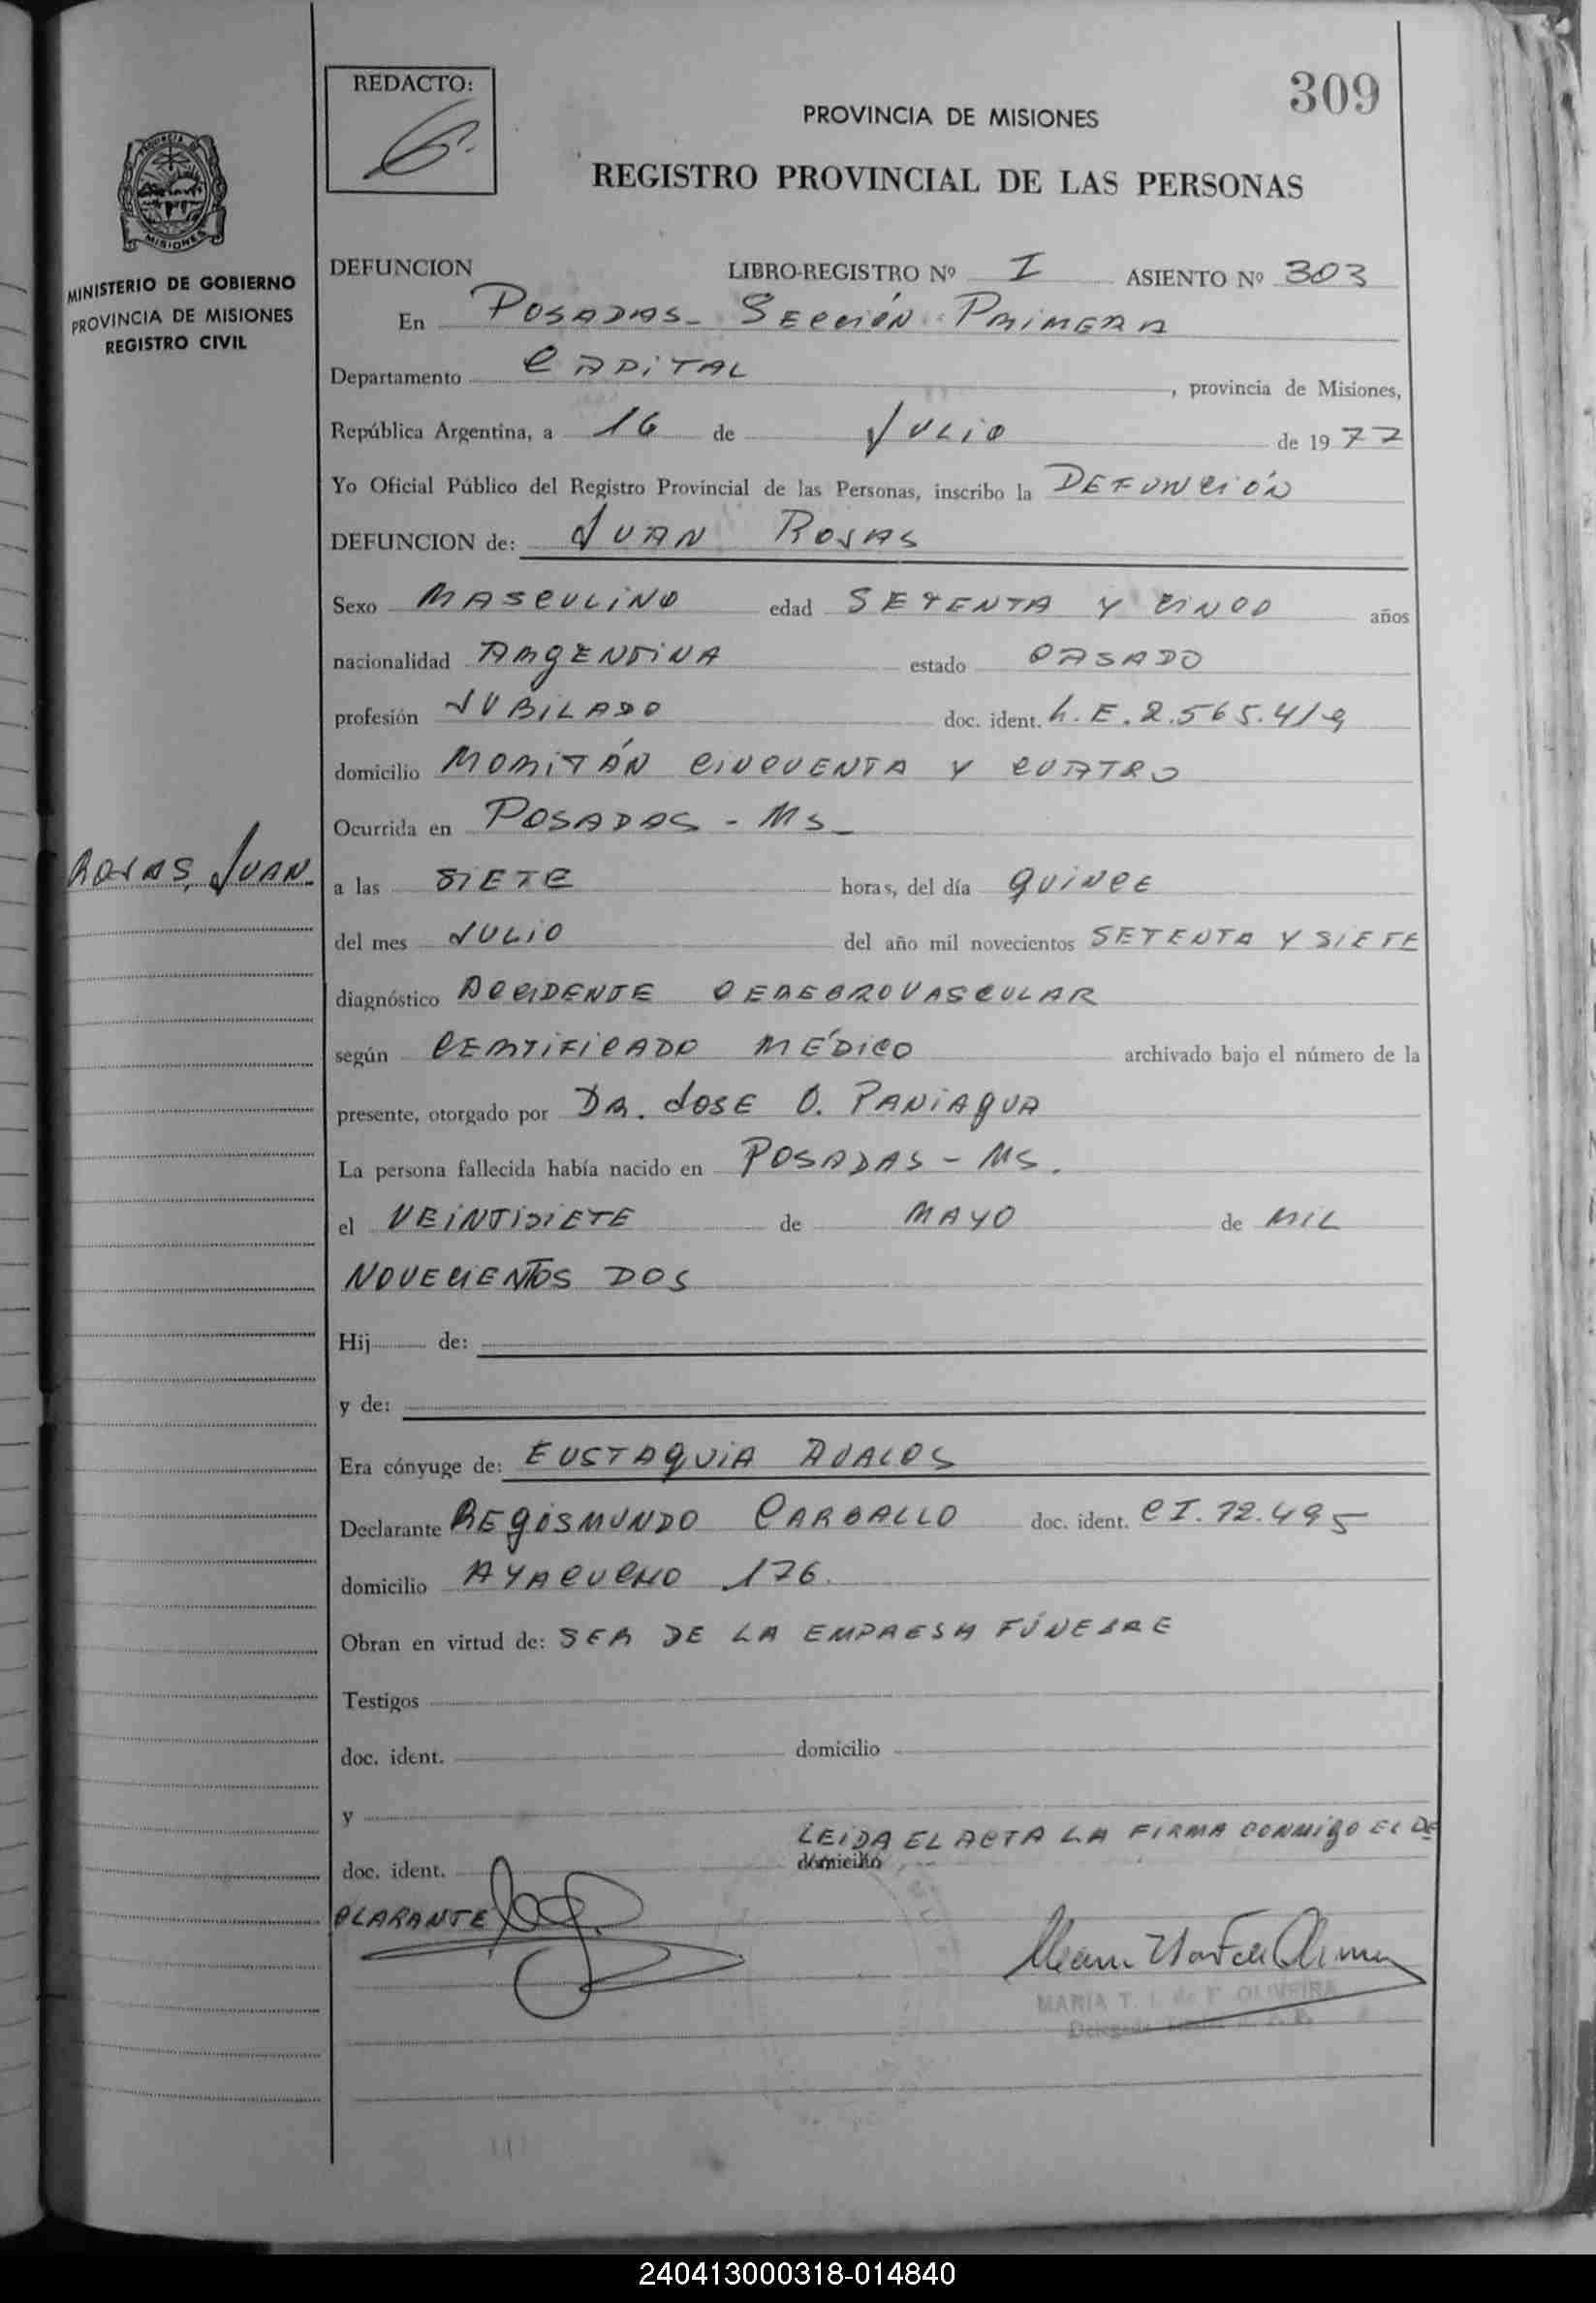 REDACTO:
309
PROVINCIA DE MISIONES
REGISTRO PROVINCIAL DE LAS PERSONAS
PROVINCIA DE
MISIONES
MINISTERIO DE GOBIERNO
PROVINCIA DE MISIONES
REGISTRO CIVIL
DEFUNCION LIBRO-REGISTRO Nº I ASIENTO Nº 303
En POSADAS - SECCIÓN PRIMERA
Departamento CAPITAL, provincia de Misiones,
República Argentina, a 16 de JULIO de 1977
Yo Oficial Público del Registro Provincial de las Personas, inscribo la DEFUNCIÓN
DEFUNCION de: JUAN ROJAS
Sexo MASCULINO edad SETENTA Y CINCO años
nacionalidad ARGENTINA estado CASADO
profesión JUBILADO doc. ident. L.E. 2.565.419
domicilio MORITÁN CINCUENTA Y CUATRO
Ocurrida en POSADAS - MS_
ROJAS, JUAN.
a las SIETE horas, del día QUINCE
del mes JULIO del año mil novecientos SETENTA Y SIETE
diagnóstico ACCIDENTE CEREBROVASCULAR
según CERTIFICADO MÉDICO archivado bajo el número de la
presente, otorgado por DR. JOSE O. PANIAGUA
La persona fallecida había nacido en POSADAS - MS.
el VEINTISIETE de MAYO de MIL
NOVECIENTOS DOS
Hij de:
y de:
Era cónyuge de: EUSTAQUIA AVALOS
Declarante REGISMUNDO CARBALLO doc. ident. CI. 72.495
domicilio AYACUCHO 176.
Obran en virtud de: SER DE LA EMPRESA FÚNEBRE
Testigos
doc. ident. domicilio
y
LEIDA EL ACTA LA FIRMA CONMIGO EL DE
doc. ident. domicilio
CLARANTE
MARIA T. I. de F. OLIVEIRA
240413000318-014840